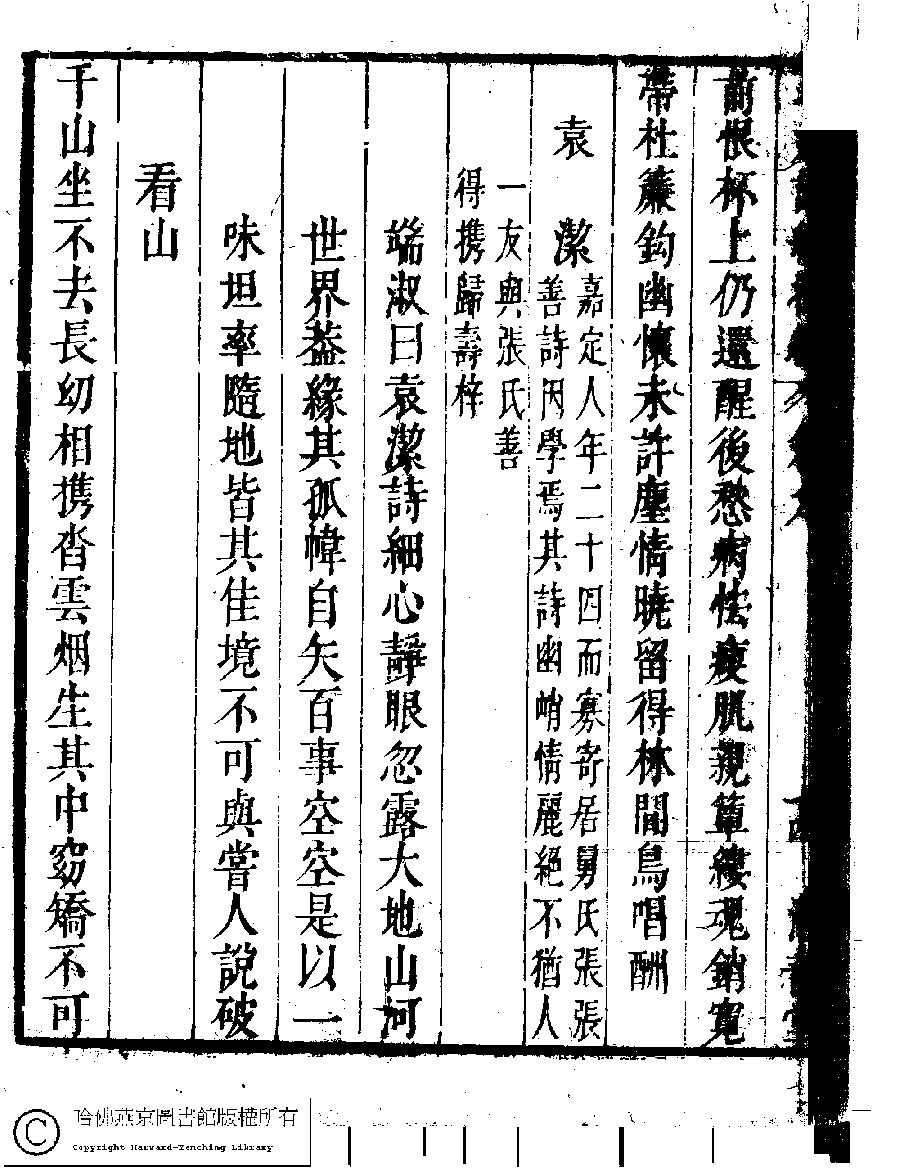 前恨杯上仍還醒後愁病怯瘦肌親簟縷魂銷寬
帶杜簾鈎幽懷未許塵情曉留得林間鳥唱酬
袁　潔
嘉定人年二十因而寡寄居舅氏張張
善詩因學焉其詩幽峭情麗絕不猶人
一友與張氏善
得携歸壽梓
端淑曰袁潔詩細心靜眼忽露大地山河
世界葢緣其孤幃自矢百事空空是以一
味坦率隨地皆其佳境不可與嘗人說破
看山
千山坐不去長幼相携沓雲烟生其中窈矯不可
哈佛燕京圖書館版權所有
Copyright Harvard-Yenching Library